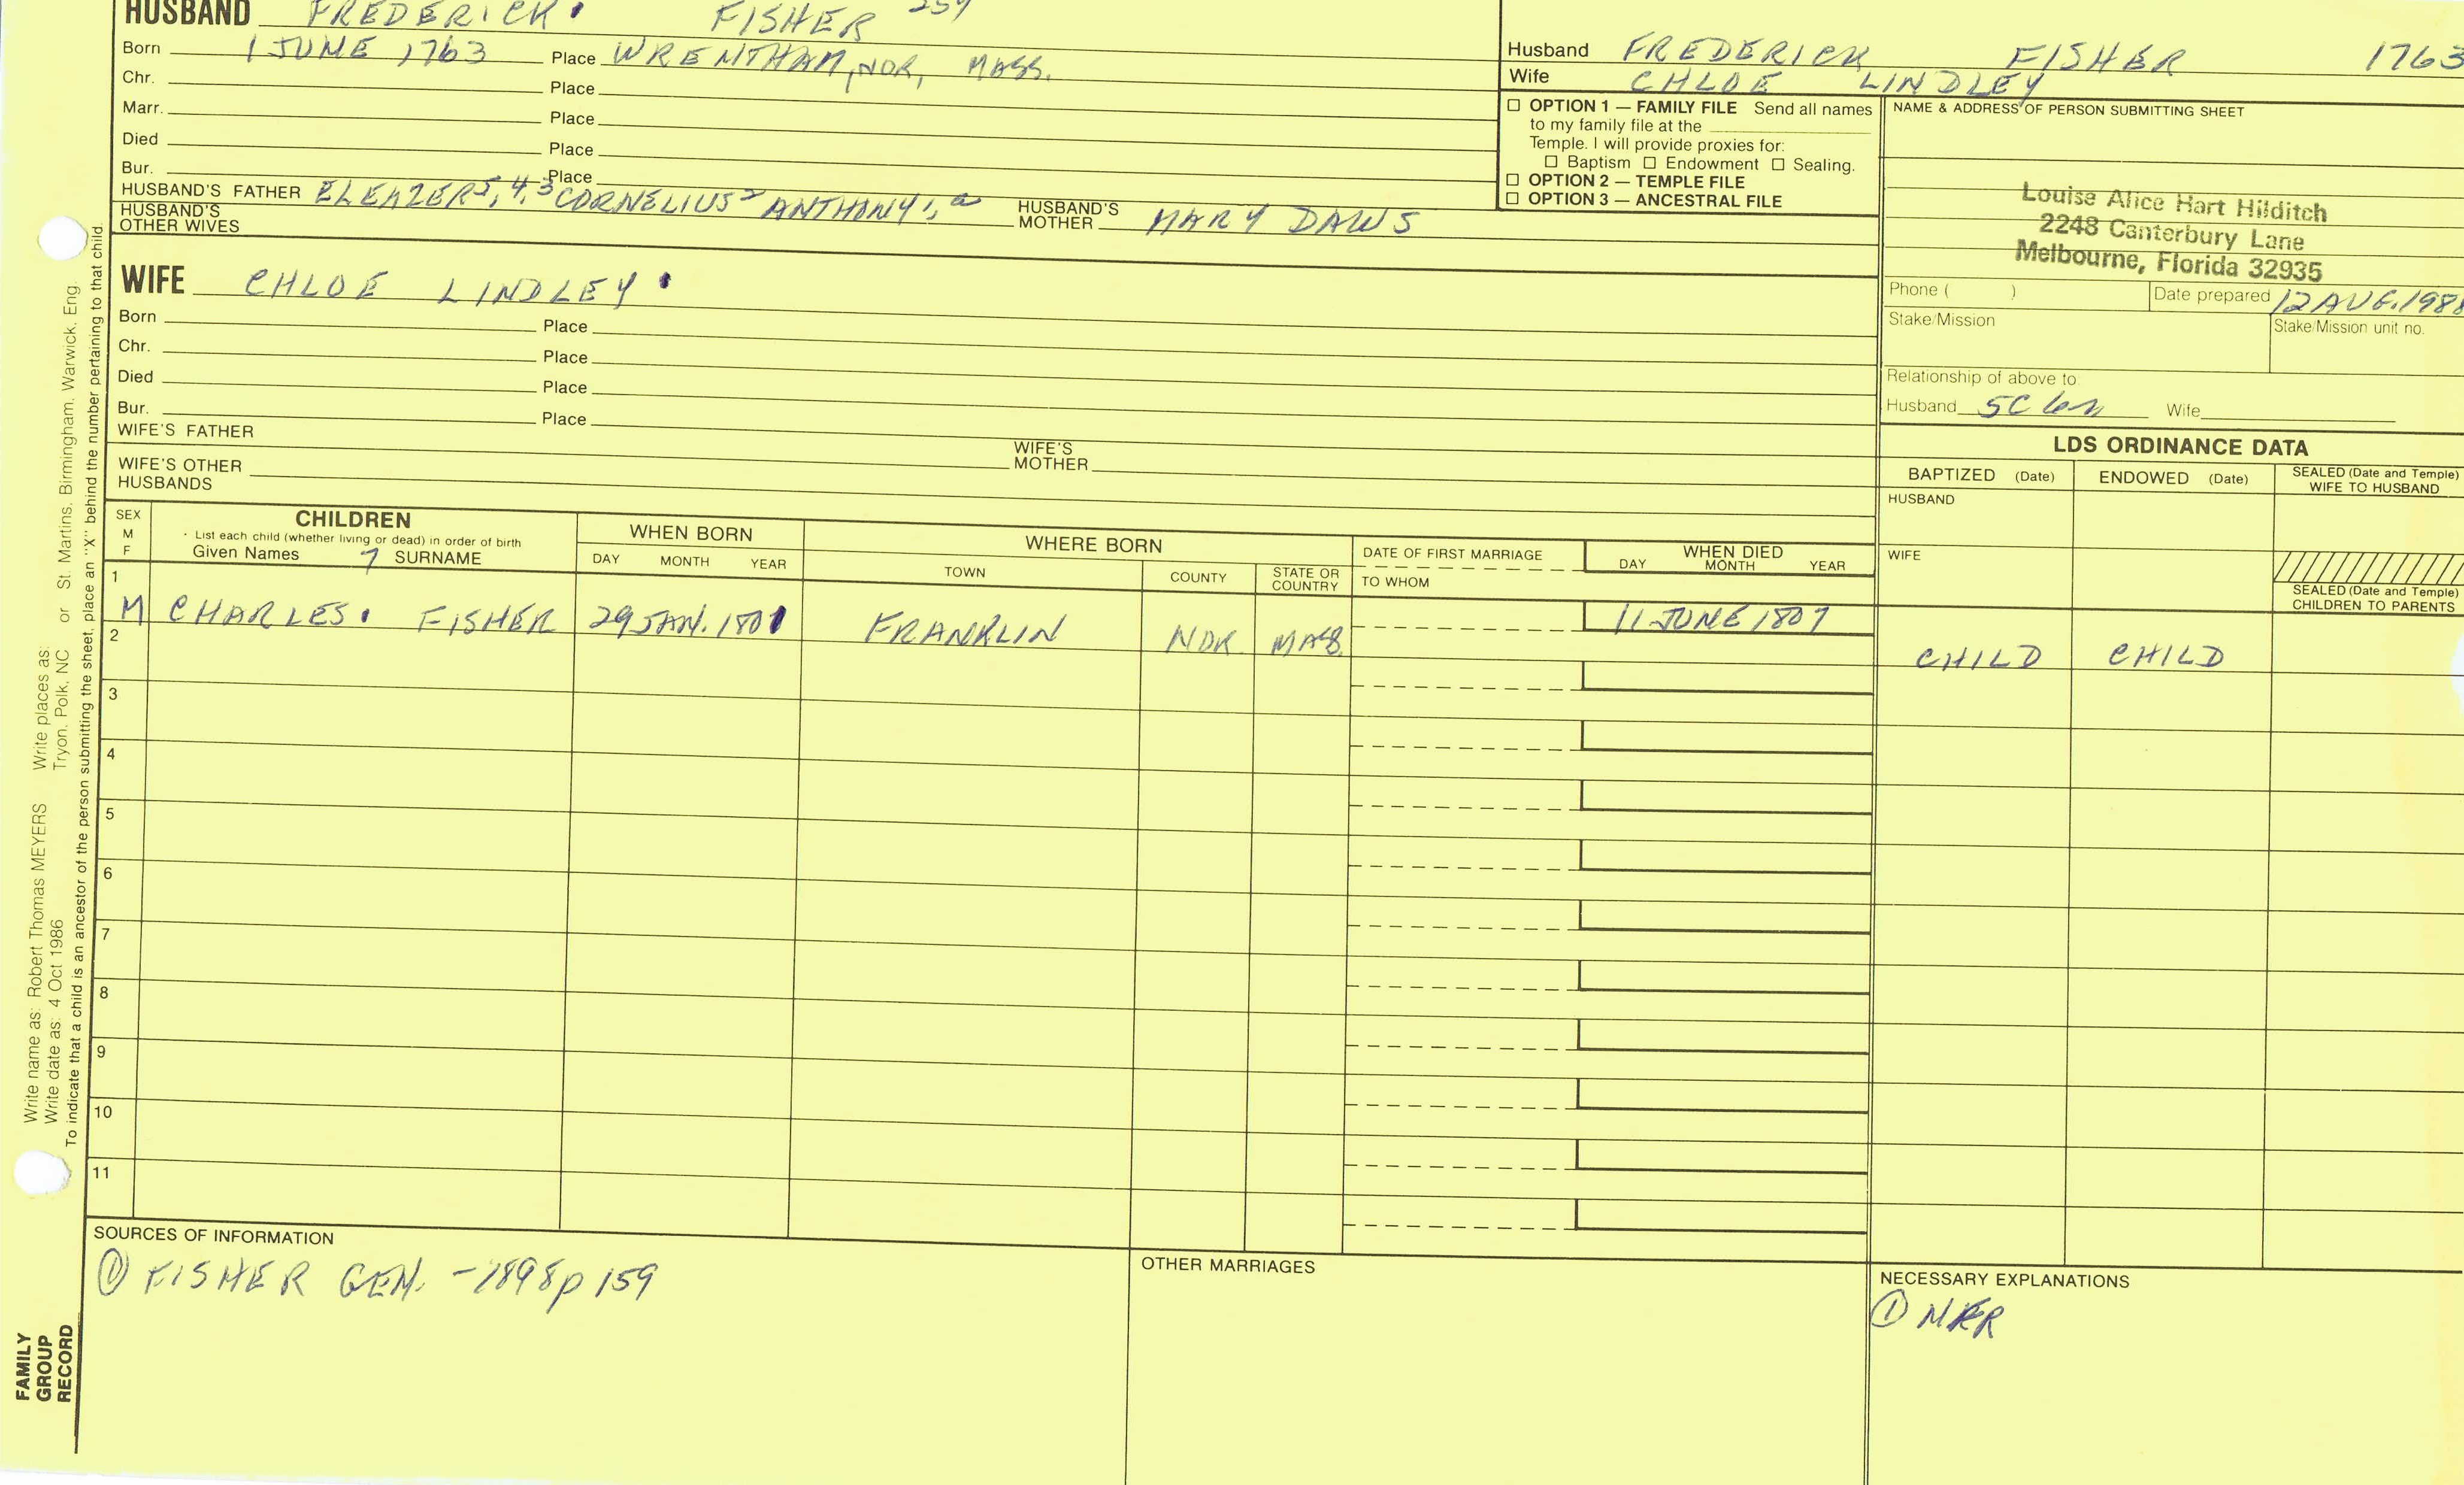 HUSBAND FREDERICK. FISHER 259
Born 1 JUNE 1763 Place WRENTHAM, NOR, MASS.
Chr. Place
Marr. Place
Died Place
Bur. Place
HUSBAND'S FATHER ELEAZER5,4,3 CORNELIUS2 ANTHONY1,a HUSBAND'S MOTHER MARY DAWS
HUSBAND'S OTHER WIVES
WIFE CHLOE LINDLEY.
Born Place
Chr. Place
Died Place
Bur. Place
WIFE'S FATHER WIFE'S MOTHER
WIFE'S OTHER HUSBANDS
Husband FREDERICK FISHER 1763
Wife CHLOE LINDLEY
☐ OPTION 1 — FAMILY FILE Send all names
to my family file at the
Temple. I will provide proxies for:
☐ Baptism ☐ Endowment ☐ Sealing.
☐ OPTION 2 — TEMPLE FILE
☐ OPTION 3 — ANCESTRAL FILE
NAME & ADDRESS OF PERSON SUBMITTING SHEET
Louise Alice Hart Hilditch
2248 Canterbury Lane
Melbourne, Florida 32935
Phone ( ) Date prepared 12 AUG. 1988
Stake/Mission Stake/Mission unit no.
Relationship of above to
Husband 5C Wife
LDS ORDINANCE DATA
BAPTIZED (Date) ENDOWED (Date) SEALED (Date and Temple) WIFE TO HUSBAND
HUSBAND
WIFE
SEALED (Date and Temple) CHILDREN TO PARENTS
SEX M F
CHILDREN
List each child (whether living or dead) in order of birth
Given Names 7 SURNAME
WHEN BORN
DAY MONTH YEAR
WHERE BORN
TOWN COUNTY STATE OR COUNTRY
DATE OF FIRST MARRIAGE
TO WHOM
WHEN DIED
DAY MONTH YEAR
1 M CHARLES. FISHER 29 JAN. 1801 FRANKLIN NOR. MASS. 11 JUNE 1807 CHILD CHILD
2
3
4
5
6
7
8
9
10
11
SOURCES OF INFORMATION
① FISHER GEN. -1898 p 159
OTHER MARRIAGES
NECESSARY EXPLANATIONS
① NRR
FAMILY
GROUP
RECORD
Write name as: Robert Thomas MEYERS Write places as: St. Martins, Birmingham, Warwick, Eng.
Write date as: 4 Oct 1986 Tryon, Polk, NC or
To indicate that a child is an ancestor of the person submitting the sheet, place an "X" behind the number pertaining to that child.